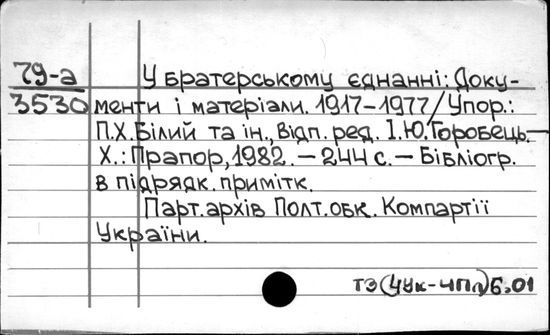 79-а
3530
У братерському єднанні: Доку-
менти і матеріали. 1917-1977/Упор.:
П.Х.Білий та ін., Відп. ред. І.Ю.Горобець.—
Х.: Прапор, 1982. — 244 с. — Бібліогр.
в підрядк. примітк.
Парт.архів Полт.обк. Компартії
України.
ТЭ(4Ук-4Пл)6.01